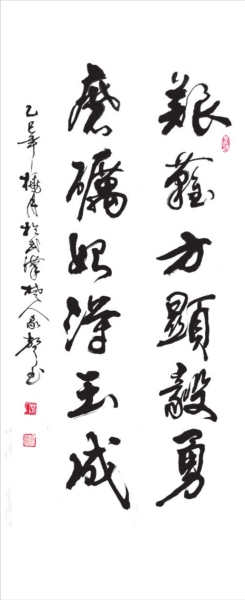 艱難方顯毅勇
磨礪始得玉成
乙巳年梅月於武漢楚人家声书